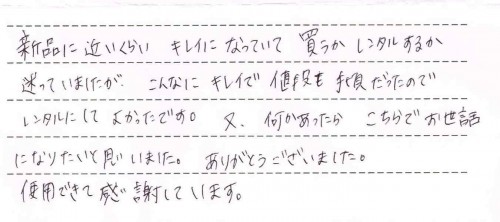 新品に近いくらい キレイに なっていて 買うか レンタルするか
迷っていましたが、こんなに キレイで 値段も 手頃だったので
レンタルにして よかったです。 又、何かあったら こちらで お世話
になりたいと思いました。 ありがとうございました。
使用できて 感謝しています。